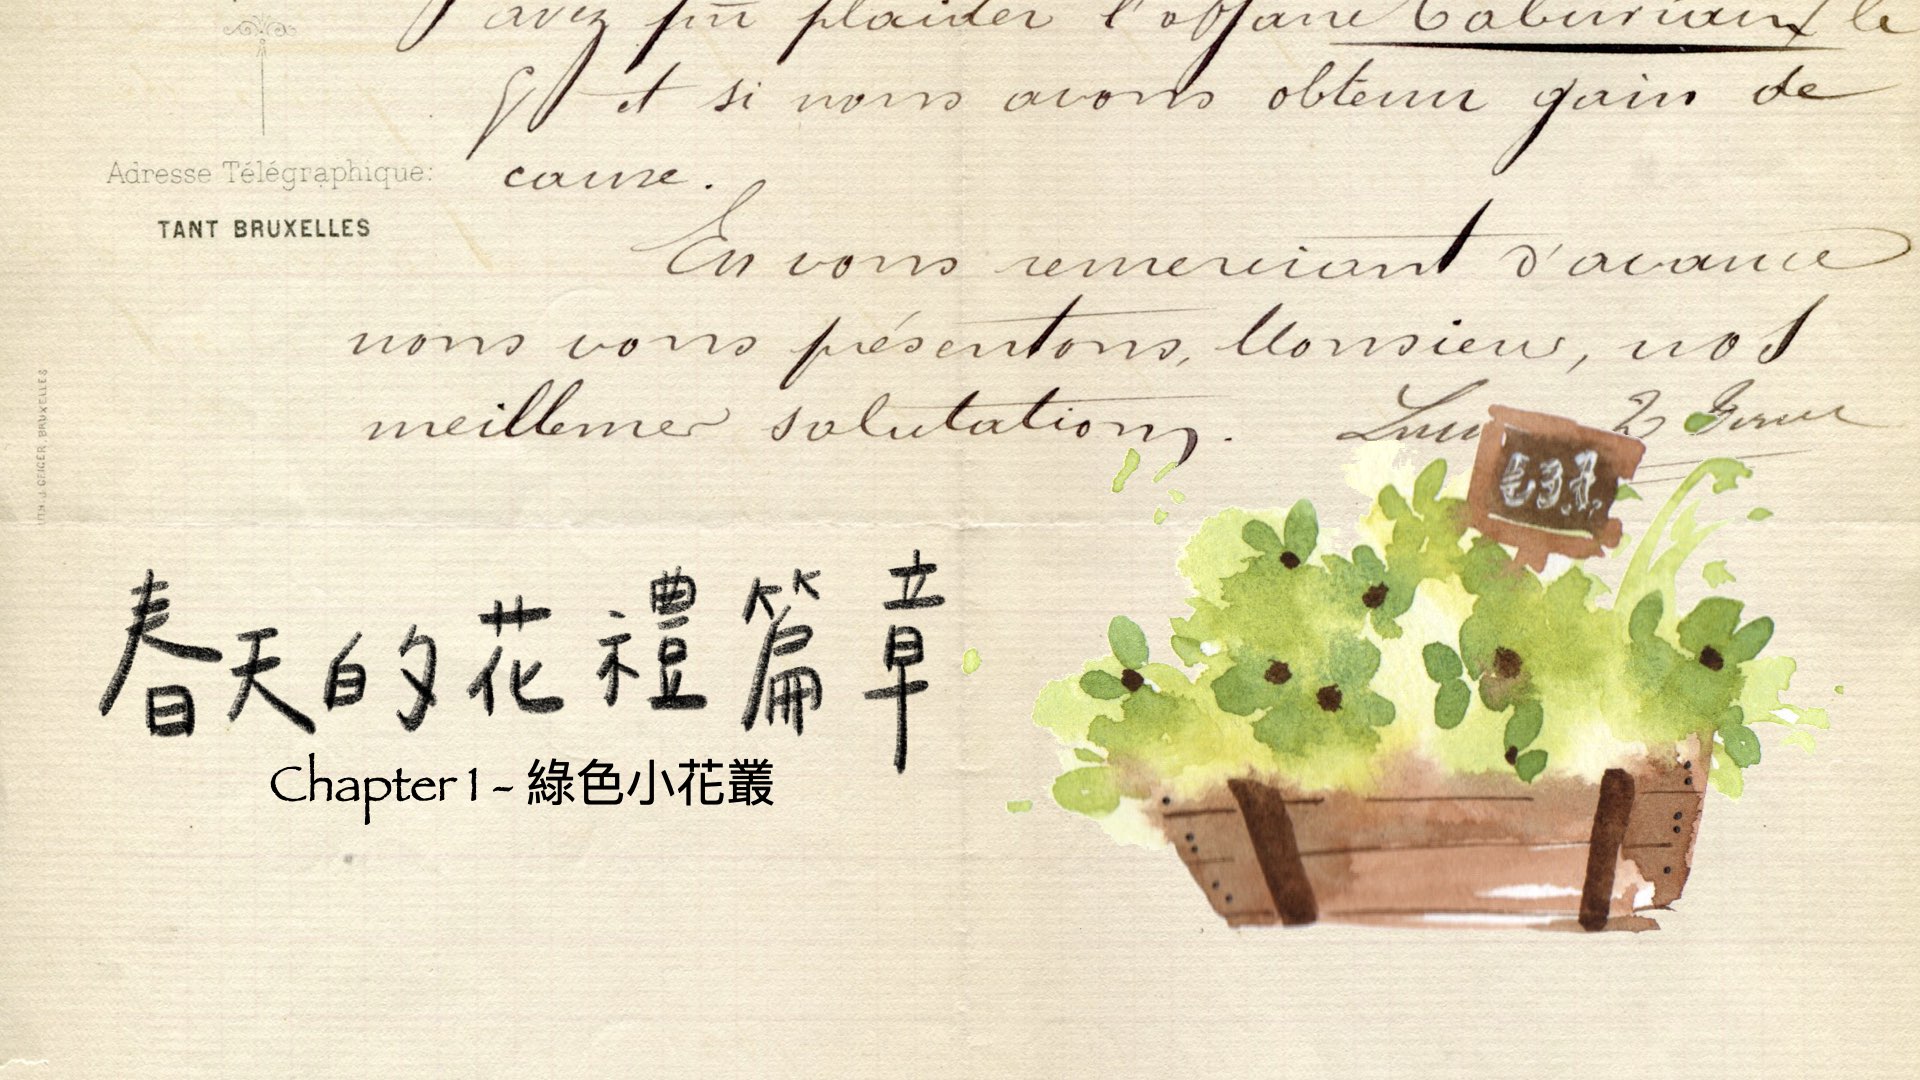 avez pu plaider l'affaire
le
et si nous avons obtenu gain de
cause.
Adresse Télégraphique:
TANT BRUXELLES
En vous remerciant d'avance
nous vous présentons, Monsieur, nos
meilleures salutations.
LITH. J. GEIGER, BRUXELLES
春天的花禮篇章
Chapter 1 - 綠色小花叢